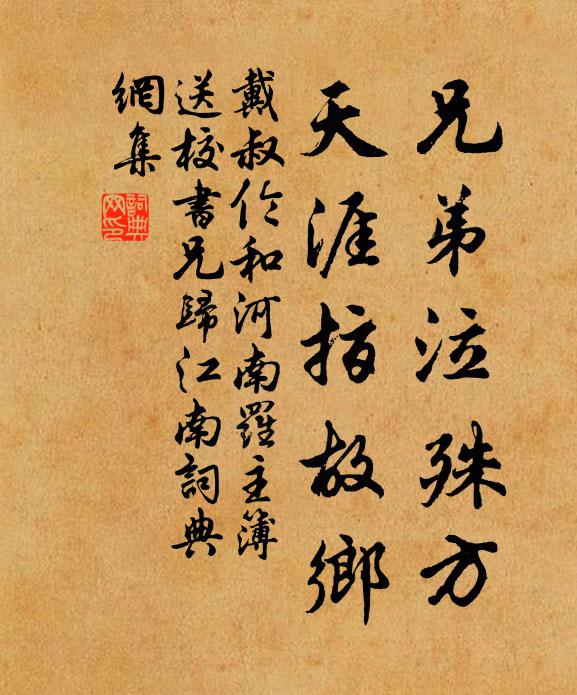 兄弟泣殊方
天涯指故鄉
戴叔伦和河南羅主簿
送校書兄歸江南詞典
網集
詞典网印